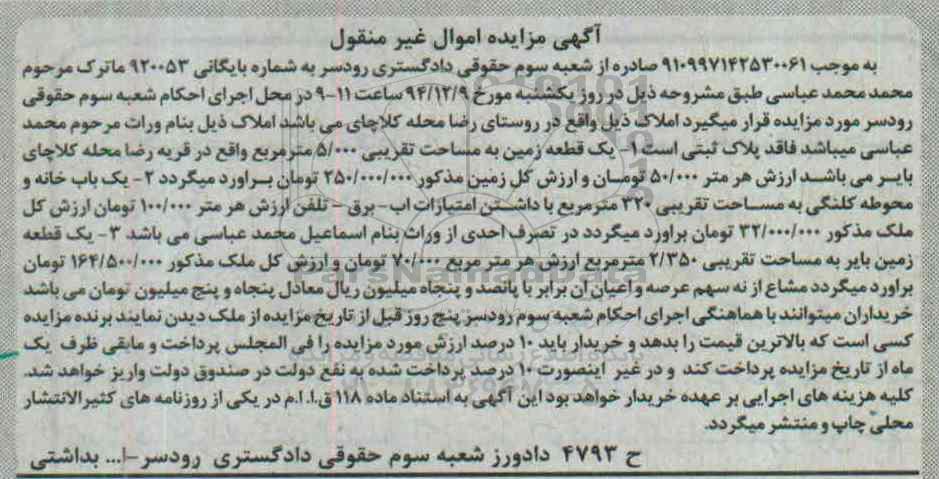 آگهی مزایده اموال غیر منقول
به موجب ۹۱۰۹۹۷۱۴۲۵۳۰۰۶۱ صادره از شعبه سوم حقوقی دادگستری رودسر به شماره بایگانی ۹۲۰۰۵۳ ماترک مرحوم
محمد محمد عباسی طبق مشروحه ذیل در روز یکشنبه مورخ ۹۴/۱۲/۹ ساعت ۱۱-۹ در محل اجرای احکام شعبه سوم حقوقی
رودسر مورد مزایده قرار میگیرد املاک ذیل واقع در روستای رضا محله کلاچای می باشد املاک ذیل بنام ورات مرحوم محمد
عباسی میباشد فاقد پلاک ثبتی است ۱- یک قطعه زمین به مساحت تقریبی ۵/۰۰۰ مترمربع واقع در قریه رضا محله کلاچای
بایر می باشد ارزش هر متر ۵۰/۰۰۰ تومان و ارزش کل زمین مذکور ۲۵۰/۰۰۰/۰۰۰ تومان براورد میگردد ۲- یک باب خانه و
محوطه کلنگی به مساحت تقریبی ۳۲۰ مترمربع با داشتن امتیازات اب - برق - تلفن ارزش هر متر ۱۰۰/۰۰۰ تومان ارزش کل
ملک مذکور ۳۲/۰۰۰/۰۰۰ تومان براورد میگردد در تصرف احدی از وراث بنام اسماعیل محمد عباسی می باشد ۳- یک قطعه
زمین بایر به مساحت تقریبی ۲/۳۵۰ مترمربع ارزش هر متر مربع ۷۰/۰۰۰ تومان و ارزش کل ملک مذکور ۱۶۴/۵۰۰/۰۰۰ تومان
براورد میگردد مشاع از نه سهم عرصه و اعیان ان برابر با پانصد و پنجاه میلیون ریال معادل پنجاه و پنج میلیون تومان می باشد
خریداران میتوانند با هماهنگی اجرای احکام شعبه سوم رودسر پنج روز قبل از تاریخ مزایده از ملک دیدن نمایند برنده مزایده
کسی است که بالاترین قیمت را بدهد و خریدار باید ۱۰ درصد ارزش مورد مزایده را فی المجلس پرداخت و مابقی ظرف یک
ماه از تاریخ مزایده پرداخت کند و در غیر اینصورت ۱۰ درصد پرداخت شده به نفع دولت در صندوق دولت واریز خواهد شد.
کلیه هزینه های اجرایی بر عهده خریدار خواهد بود این آگهی به استناد ماده ۱۱۸ ق.ا.ا.م در یکی از روزنامه های کثیرالانتشار
محلی چاپ و منتشر میگردد.
ح ۴۷۹۳ دادورز شعبه سوم حقوقی دادگستری رودسر -ا... بداشتی
ParsNamadData